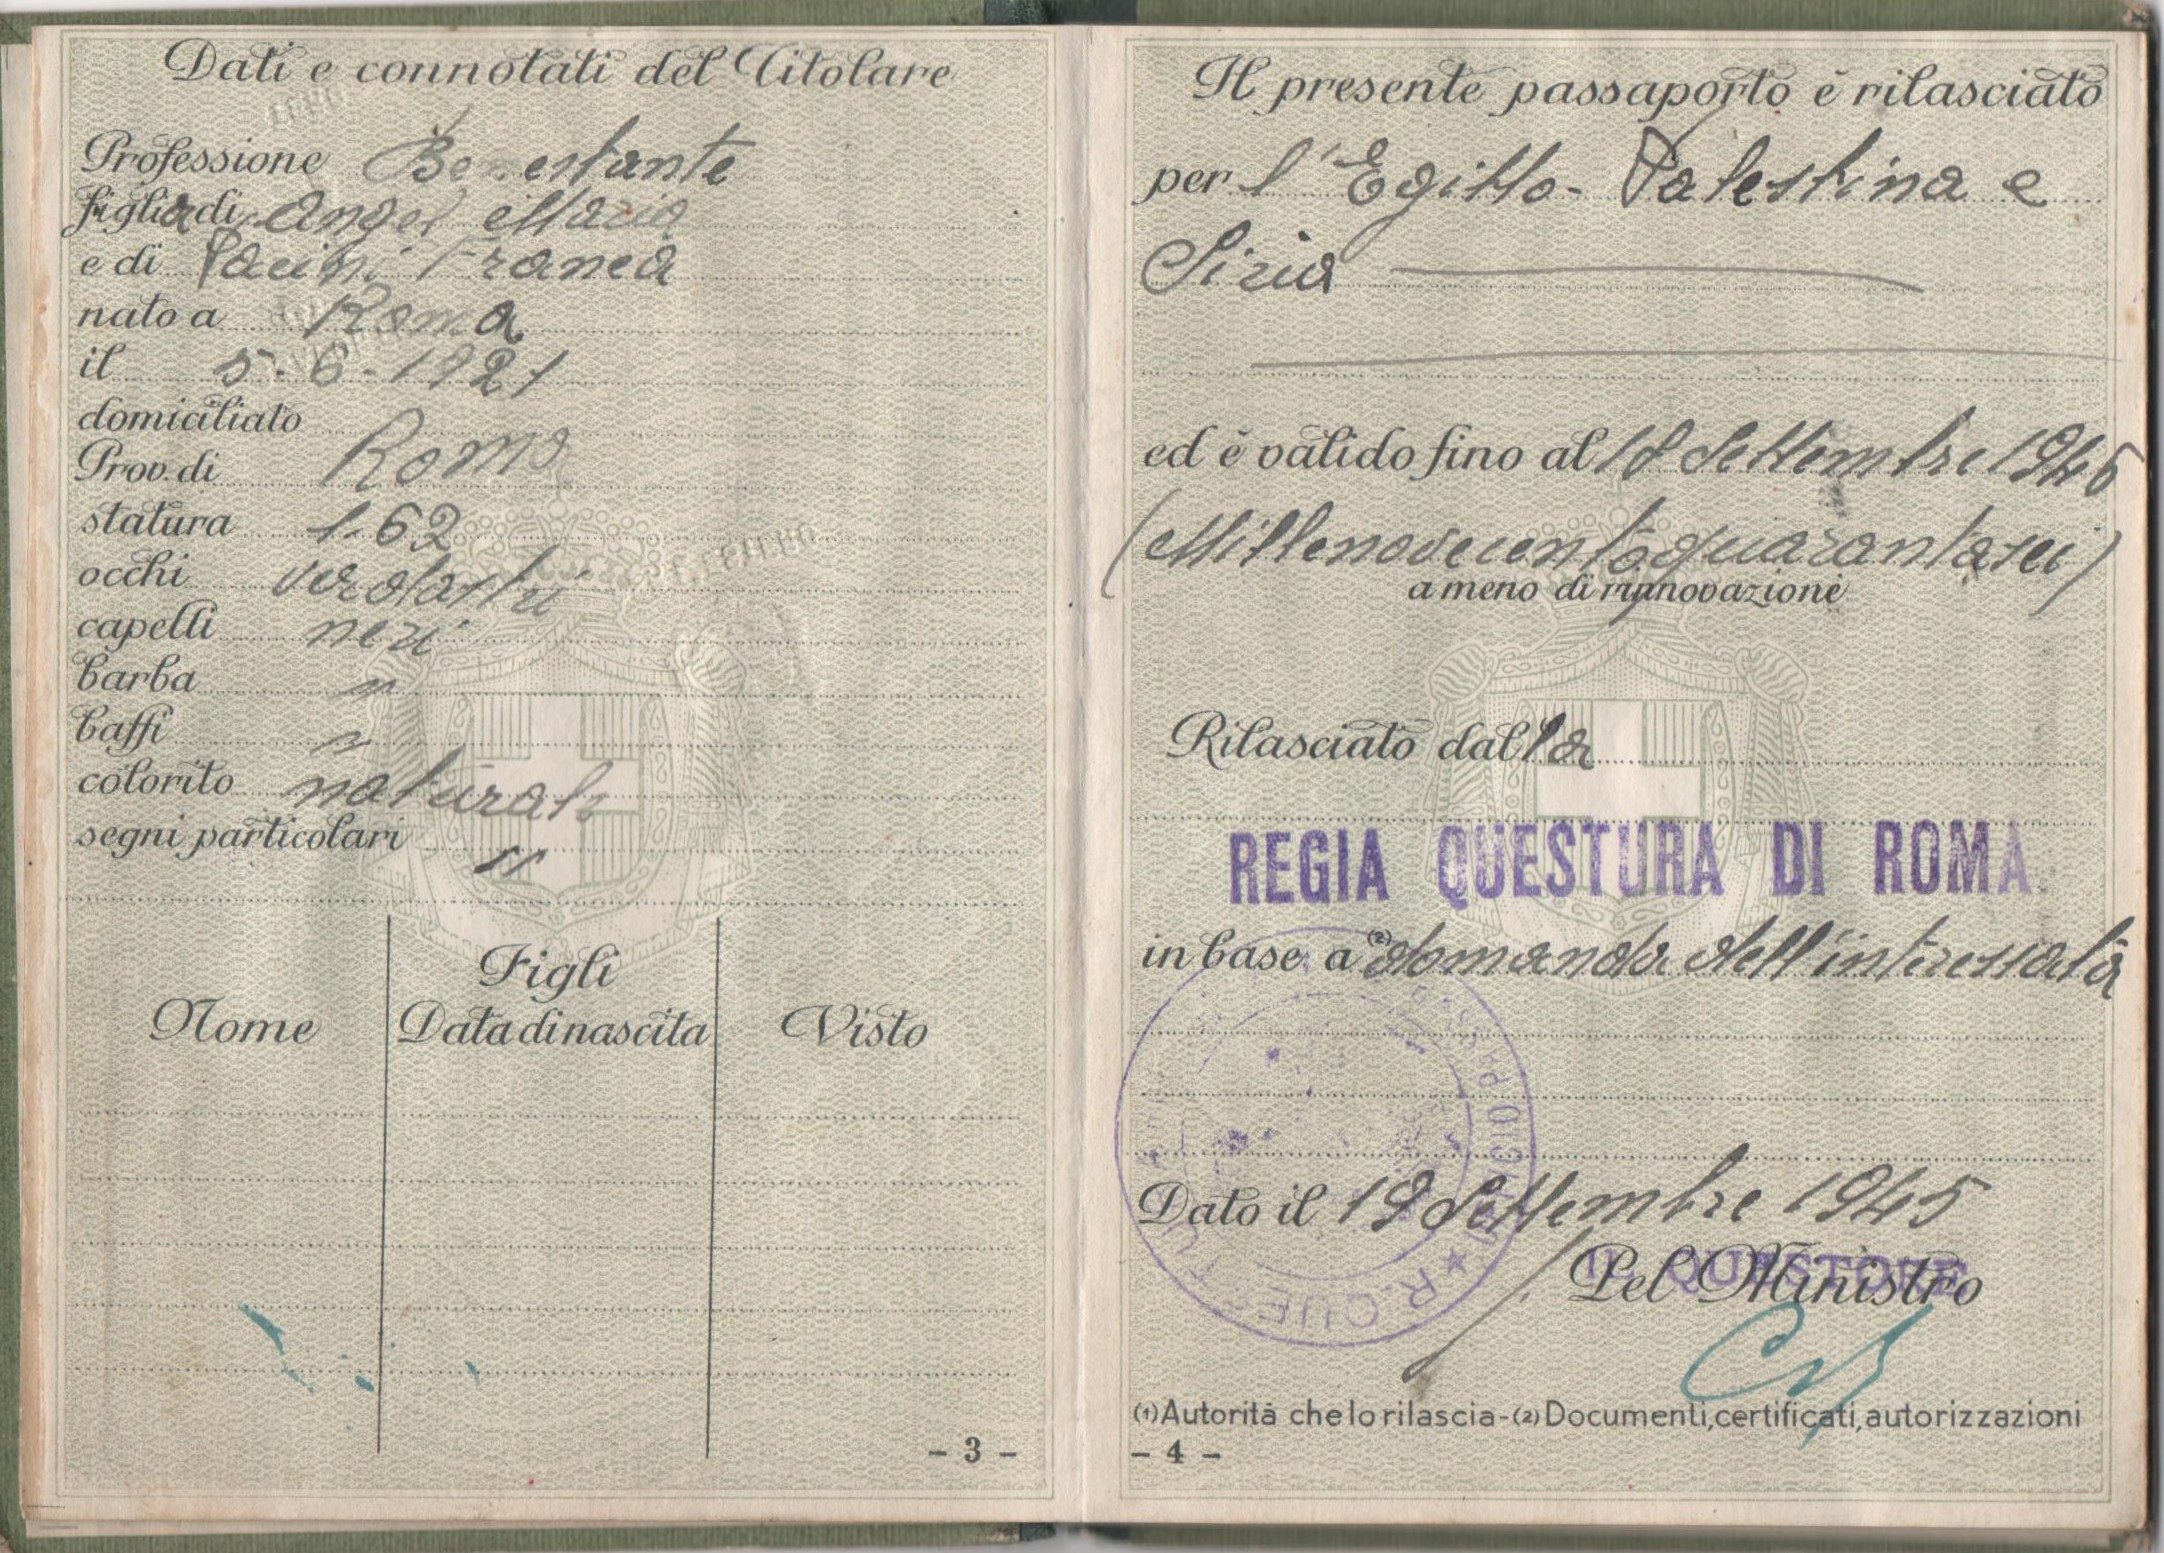 Dati e connotati del Titolare
Professione Benestante
figlia di Angel Maria
e di Pacini Franca
nato a Roma
il 5-6-1921
domiciliato
Prov. di Roma
statura 1.62
occhi verdastri
capelli neri
barba "
baffi "
colorito naturale
segni particolari "
Figli
Nome Data di nascita Visto
- 3 -
Il presente passaporto è rilasciato
per l'Egitto - Palestina e
Siria
ed è valido fino al 18 Settembre 1946
(Millenovecentoquarantasei)
a meno di rinnovazione
Rilasciato dal la
REGIA QUESTURA DI ROMA
in base a (2) domanda dell'interessata
Dato il 19 Settembre 1945
IL QUESTORE
Pel Ministro
★ R. QUESTU
(1) Autorità che lo rilascia - (2) Documenti, certificati, autorizzazioni
- 4 -